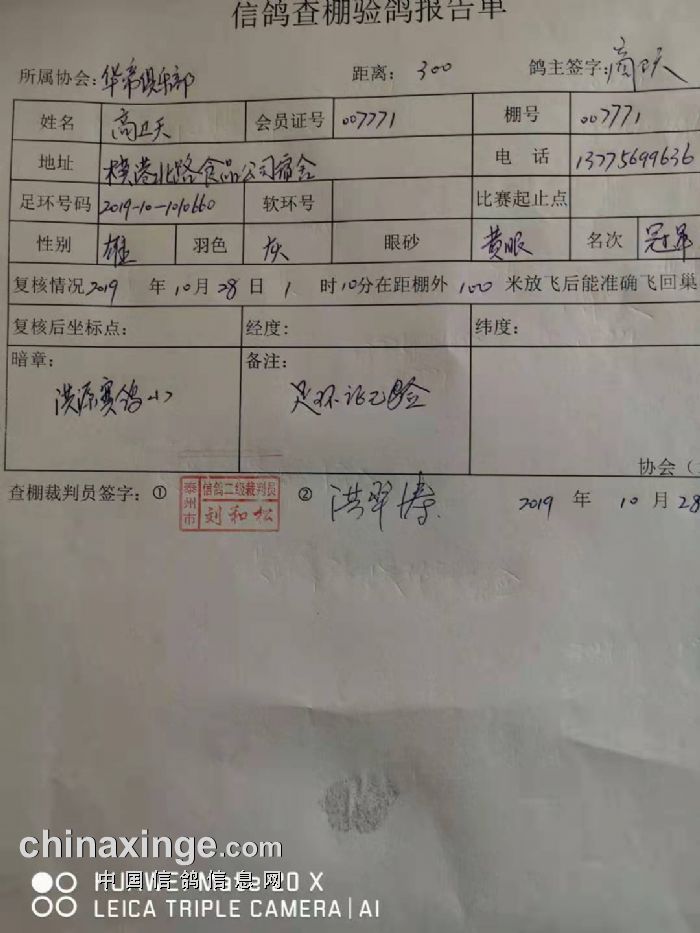 信鸽查棚验鸽报告单
所属协会：华帝俱乐部 距离：300 鸽主签字：
姓名 高卫天 会员证号 007771 棚号 007771
地址 横港北路食品公司宿舍 电话 13775699636
足环号码 2019-10-1010660 软环号 比赛起止点
性别 雄 羽色 灰 眼砂 黄眼 名次 冠军
复核情况 2019 年 10 月 28 日 1 时 10 分在距棚外 100 米放飞后能准确飞回巢
复核后坐标点： 经度： 纬度：
暗章： 备注：
洪源赛鸽 足环证已验
协会（
查棚裁判员签字：① 泰州市 信鸽二级裁判员 刘和松 ② 2019 年 10 月 28
chinaxinge.com
中国信鸽信息网
HUAWEI Mate 20 X
LEICA TRIPLE CAMERA | AI